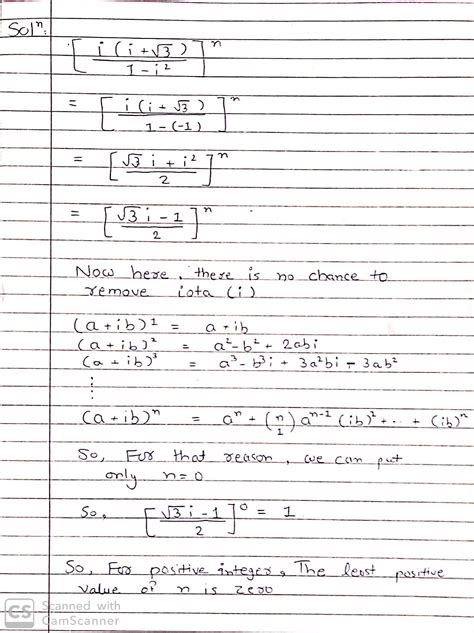 Solⁿ:
[ i (i + √3) / 1 - i² ]ⁿ
= [ i (i + √3) / 1 - (-1) ]ⁿ
= [ √3 i + i² / 2 ]ⁿ
= [ √3 i - 1 / 2 ]ⁿ
Now here, there is no chance to
remove iota (i)
(a + ib)¹ = a + ib
(a + ib)² = a² - b² + 2abi
(a + ib)³ = a³ - b³i + 3a²bi - 3ab²
⋮
(a + ib)ⁿ = aⁿ + (n/1) aⁿ⁻² (ib)² + .. + (ib)ⁿ
So, For that reason, we can put
only n = 0
So, [ √3 i - 1 / 2 ]⁰ = 1
So, For positive integer, The least positive
value of n is zero
CS Scanned with
CamScanner